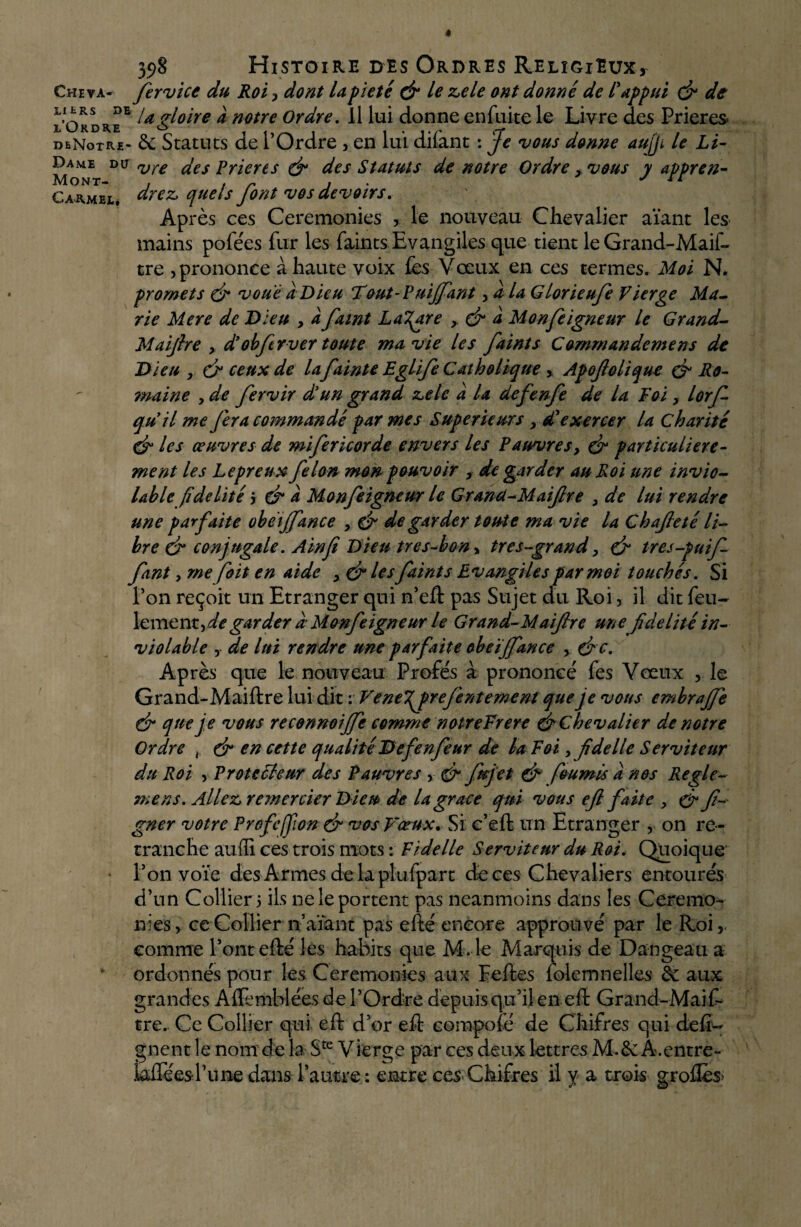 398 HISTOIRE DES ORDRES RELIGIEUX,
CHEVA-
LIERS DE
L'ORDRE
DE NOTRE-
DAME DU
MONT-
CARMEL.
ſervice du Roi, dont la pieté & le zele ont donné de l'appui & de
la gloire à notre Ordre. Il lui donne enſuite le Livre des Prieres
& Statuts de l'Ordre, en lui diſant : Je vous donne auſſi le Li-
vre des Prieres & des Statuts de notre Ordre, vous y appren-
drez quels ſont vos devoirs.
Après ces Ceremonies, le nouveau Chevalier aïant les
mains poſées ſur les ſaints Evangiles que tient le Grand-Maiſ-
tre, prononce à haute voix ſes Vœux en ces termes. Moi N.
promets & vouë à Dieu Tout-Puiſſant, à la Glorieuſe Vierge Ma-
rie Mere de Dieu, à ſaint Lazare, & à Monſeigneur le Grand-
Maiſtre, d'obſerver toute ma vie les ſaints Commandemens de
Dieu, & ceux de la ſainte Egliſe Catholique, Apoſtolique & Ro-
maine, de ſervir d'un grand zele à la defenſe de la Foi, lorſ-
qu'il me ſera commandé par mes Superieurs, d'exercer la Charité
& les œuvres de miſericorde envers les Pauvres, & particuliere-
ment les Lepreux ſelon mon pouvoir, de garder au Roi une invio-
lable fidelité ; & à Monſeigneur le Grand-Maiſtre, de lui rendre
une parfaite obeïſſance, & de garder toute ma vie la Chaſteté li-
bre & conjugale. Ainſi Dieu tres-bon, tres-grand, & tres-puiſ-
ſant, me ſoit en aide, & les ſaints Evangiles par moi touchés. Si
l'on reçoit un Etranger qui n'eſt pas Sujet du Roi, il dit ſeu-
lement, de garder à Monſeigneur le Grand-Maiſtre une fidelité in-
violable, de lui rendre une parfaite obeïſſance, &c.
Après que le nouveau Profés à prononcé ſes Vœux, le
Grand-Maiſtre lui dit : Venez preſentement que je vous embraſſe
& que je vous reconnoiſſe comme notre Frere & Chevalier de notre
Ordre, & en cette qualité Defenſeur de la Foi, fidelle Serviteur
du Roi, Protecteur des Pauvres, & ſujet & ſoumis à nos Regle-
mens. Allez remercier Dieu de la grace qui vous eſt faite, & ſi-
gner votre Profeſſion & vos Vœux. Si c'eſt un Etranger, on re-
tranche auſſi ces trois mots : Fidelle Serviteur du Roi. Quoique
l'on voïe des Armes de la pluſpart de ces Chevaliers entourés
d'un Collier ; ils ne le portent pas neanmoins dans les Ceremo-
nies, ce Collier n'aïant pas eſté encore approuvé par le Roi,
comme l'ont eſté les habits que M. le Marquis de Dangeau a
ordonnés pour les Ceremonies aux Feſtes ſolemnelles & aux
grandes Aſſemblées de l'Ordre depuis qu'il en eſt Grand-Maiſ-
tre. Ce Collier qui eſt d'or eſt compoſé de Chifres qui deſi-
gnent le nom de la Ste Vierge par ces deux lettres M. & A. entre-
laſſées l'une dans l'autre : entre ces Chifres il y a trois groſſes